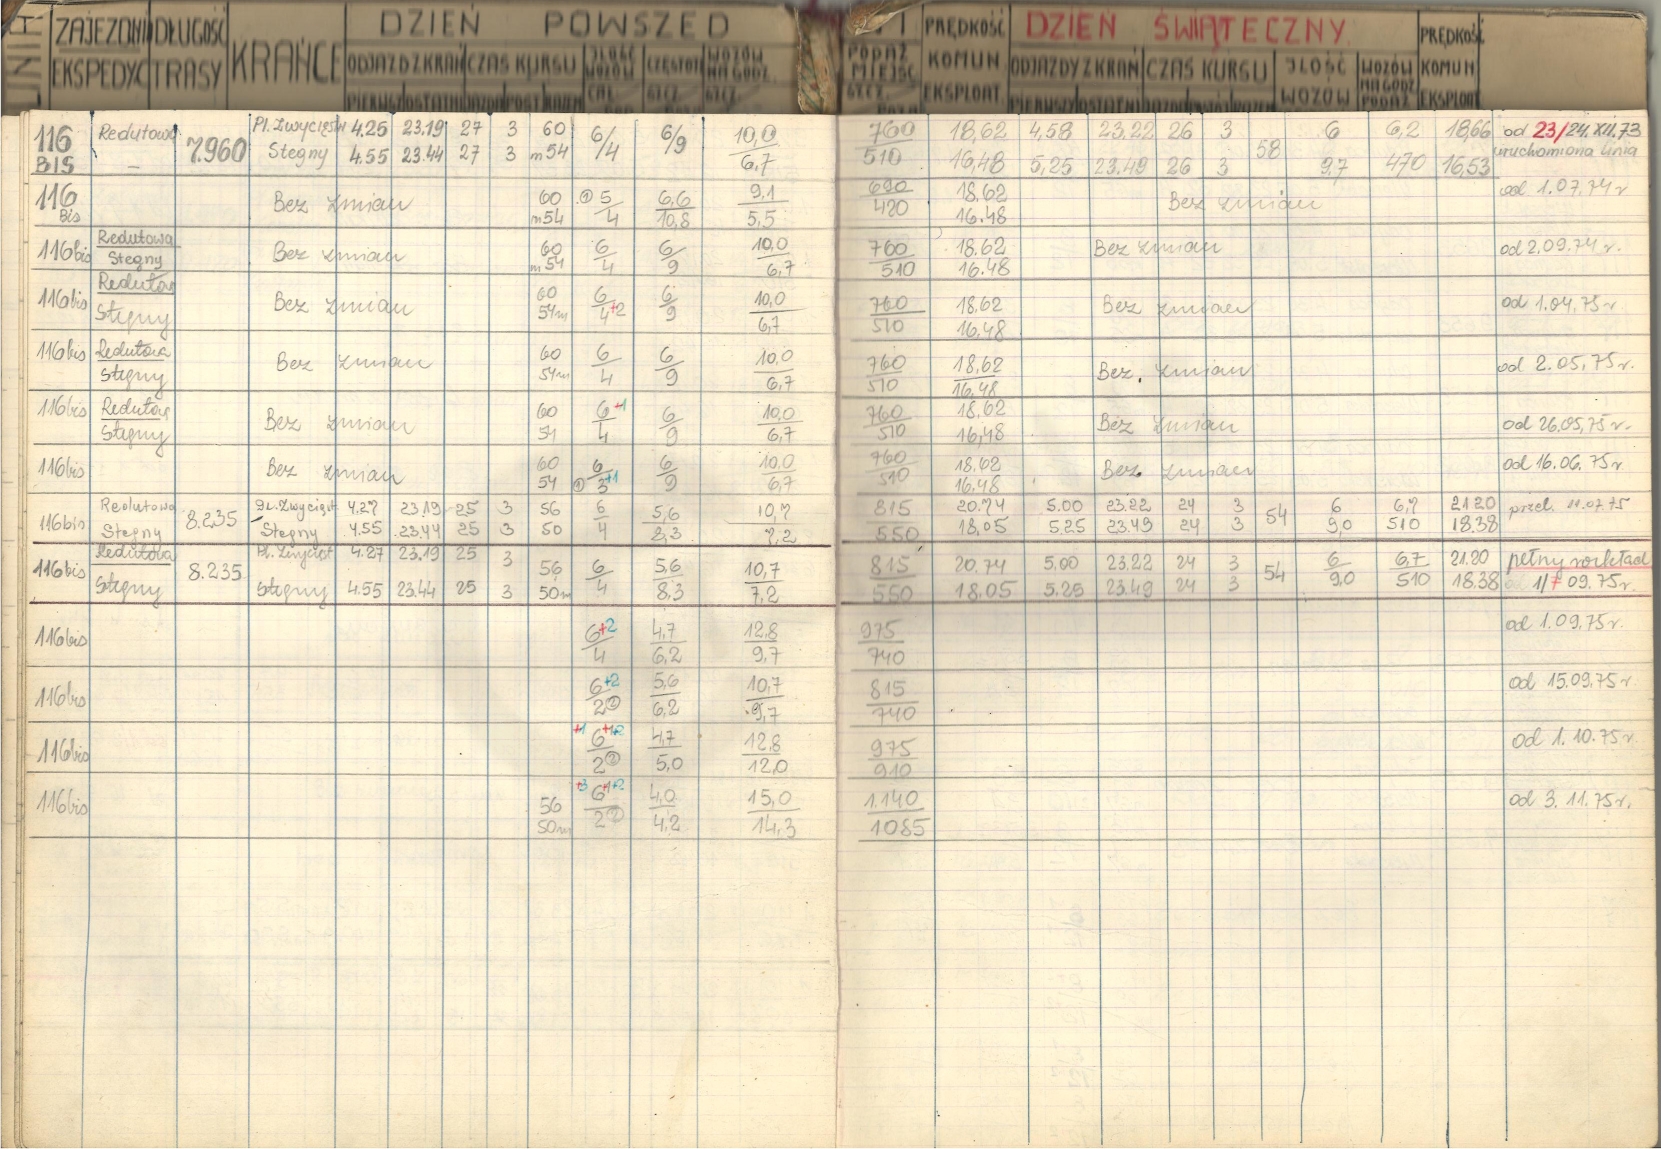 LINIA ZAJEZDN DŁUGOŚĆ DZIEŃ POWSZEDNI PRĘDKOŚĆ DZIEŃ ŚWIĄTECZNY PRĘDKOŚĆ
EKSPEDYC TRASY KRAŃCE ODJAZD Z KRAŃ CZAS KURSU JLOŚĆ WOZÓW CZĘSTOŚ WOZÓW NA GODZ PODAŻ MIEJSC KOMUN ODJAZDY Z KRAŃ CZAS KURSU JLOŚĆ WOZÓW WOZÓW NA GODZ PODAŻ KOMUN
PIERWSZ OSTATNI JAZDA POST RAZEM SZCZ. SZCZ. SZCZ. EKSPLOAT PIERWSZY OSTATNI JAZDA POSTÓJ RAZEM EKSPLOAT
116 Redutowa 7.960 Pl. Zwycięstw 4.25 23.19 27 3 60 6/4 6/9 10,0 760 18,62 4,58 23.22 26 3 58 6 6,2 18,66 od 23/24.XII.73
BIS — Stegny 4.55 23.44 27 3 m54 6,7 510 16,48 5,25 23.49 26 3 9,7 470 16,53 uruchomiona linia
116 Bez zmian 60 ① 5 6,6 9.1 690 18.62 Bez zmian od 1.07.74 r
Bis m54 4 10,8 5,5 420 16.48
116bis Redutowa Bez zmian 60 6 6 10,0 760 18.62 Bez zmian od 2.09.74 r.
Stegny m54 4 9 6,7 510 16.48
116bis Redutow Bez zmian 60 6 6 10,0 760 18.62 Bez zmian od 1.04.75 r
Stegny 54m 4+2 9 6,7 510 16.48
116bis Redutowa Bez zmian 60 6 6 10,0 760 18,62 Bez zmian od 2.05.75 r.
Stegny 54m 4 9 6,7 510 16.48
116bis Redutow Bez zmian 60 6+1 6 10,0 760 18.62 Bez zmian od 26.05.75 r.
Stegny 54 4 9 6,7 510 16,48
116bis Bez zmian 60 6 6 10,0 760 18.62 Bez zmian od 16.06.75 r.
54 ① 3+1 9 6,7 510 16.48
116bis Redutowa 8.235 Pl. Zwycięst. 4.27 23.19 25 3 56 6 5,6 10,7 815 20.74 5.00 23.22 24 3 54 6 6,7 21.20 przel. 11.07.75
Stegny Stegny 4.55 23.44 25 3 50 4 8,3 7,2 550 18,05 5.25 23.49 24 3 9,0 510 18.38
116bis Redutowa 8.235 Pl. Zwycięst 4.27 23.19 25 3 56 6 5,6 10,7 815 20.74 5.00 23.22 24 3 54 6 6,7 21.20 pełny rozkład
Stegny Stegny 4.55 23.44 25 3 50m 4 8,3 7,2 550 18.05 5.25 23.49 24 3 9,0 510 18.38 od 1/7 09.75 r.
116bis 6+2 4,7 12,8 975 od 1.09.75 r.
4 6,2 9,7 740
116bis 6+2 5,6 10,7 815 od 15.09.75 r.
2② 6,2 9,7 740
116bis +1 6+1+2 4,7 12,8 975 od 1.10.75 r.
2② 5,0 12,0 910
116bis 56 +3 6+1+2 4,0 15,0 1.140 od 3.11.75 r.
50m 2② 4,2 14,3 1085